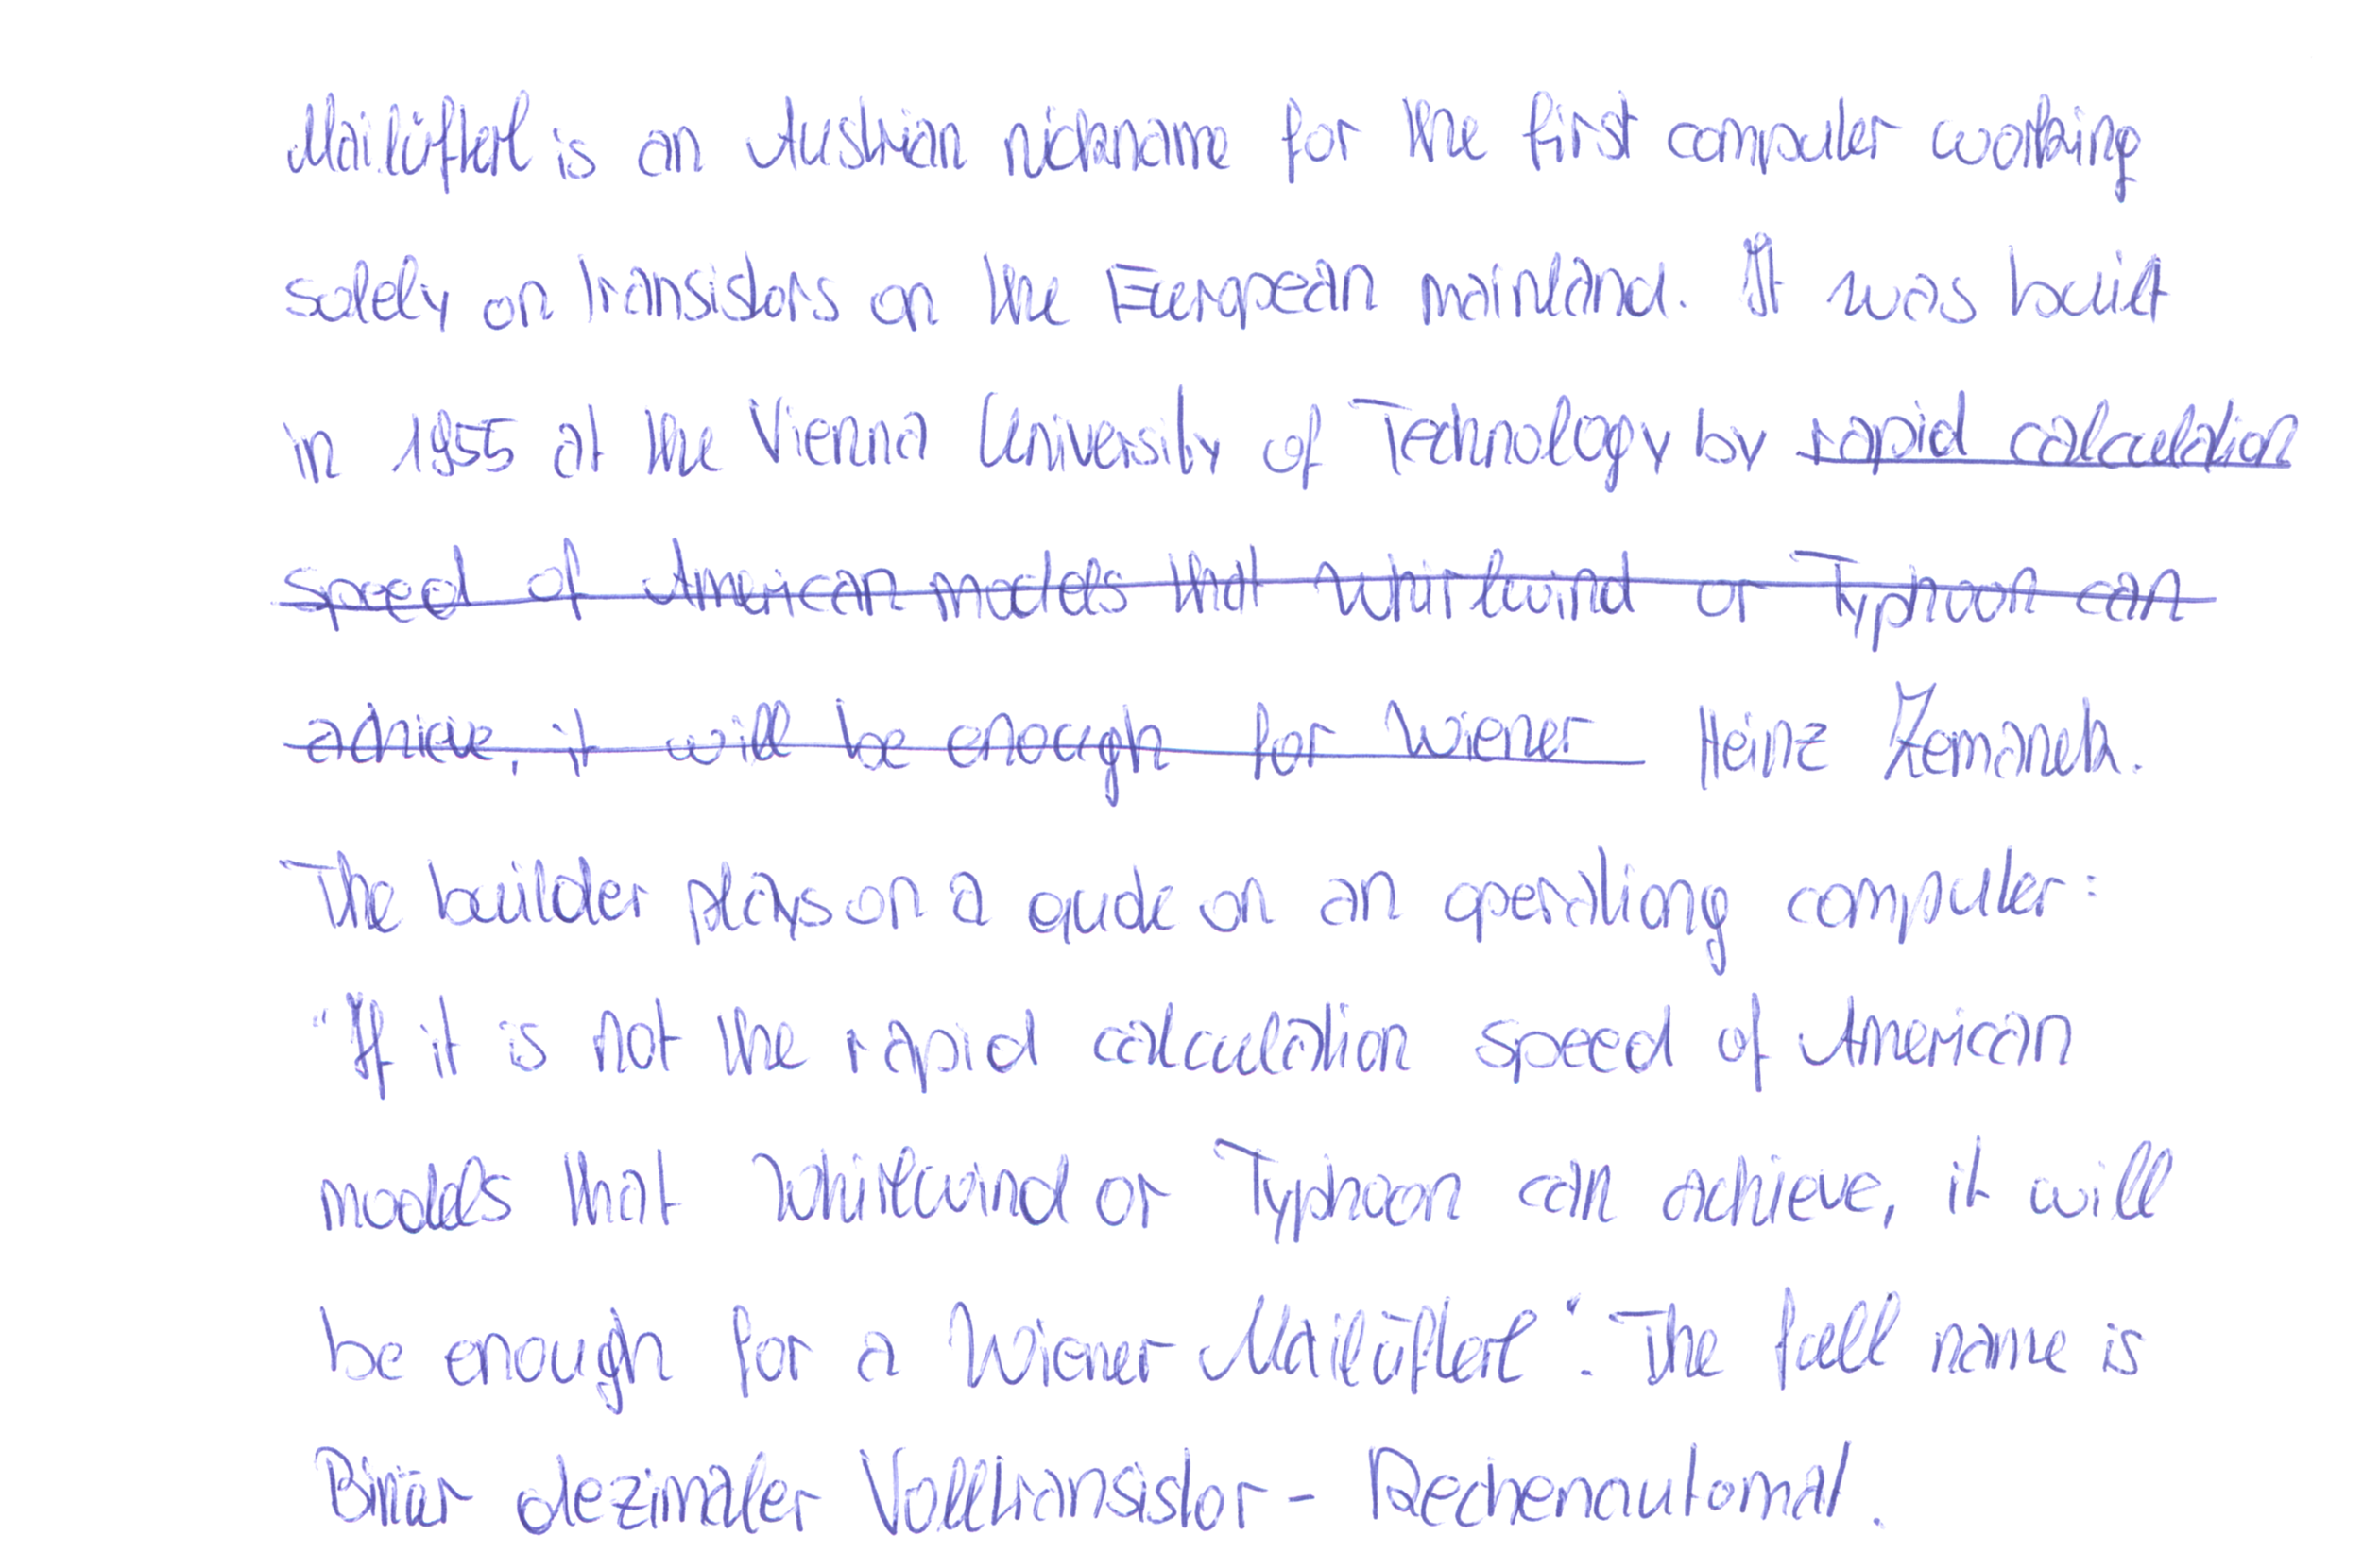 Mailüfterl is an Austrian nickname for the first computer working
solely on transistors on the European mainland. It was built
in 1955 at the Vienna University of Technology by rapid calculation
speed of American models that Whirlwind or Typhoon can
achieve, it will be enough for Wiener Heinz Zemanek.
The builder plays on a qude on an operationg computer:
"If it is not the rapid calculation speed of American
models that Whirlwind or Typhoon can achieve, it will
be enough for a Wiener Mailüfterl". The full name is
Binär dezimaler Volltransistor-Rechenautomat.